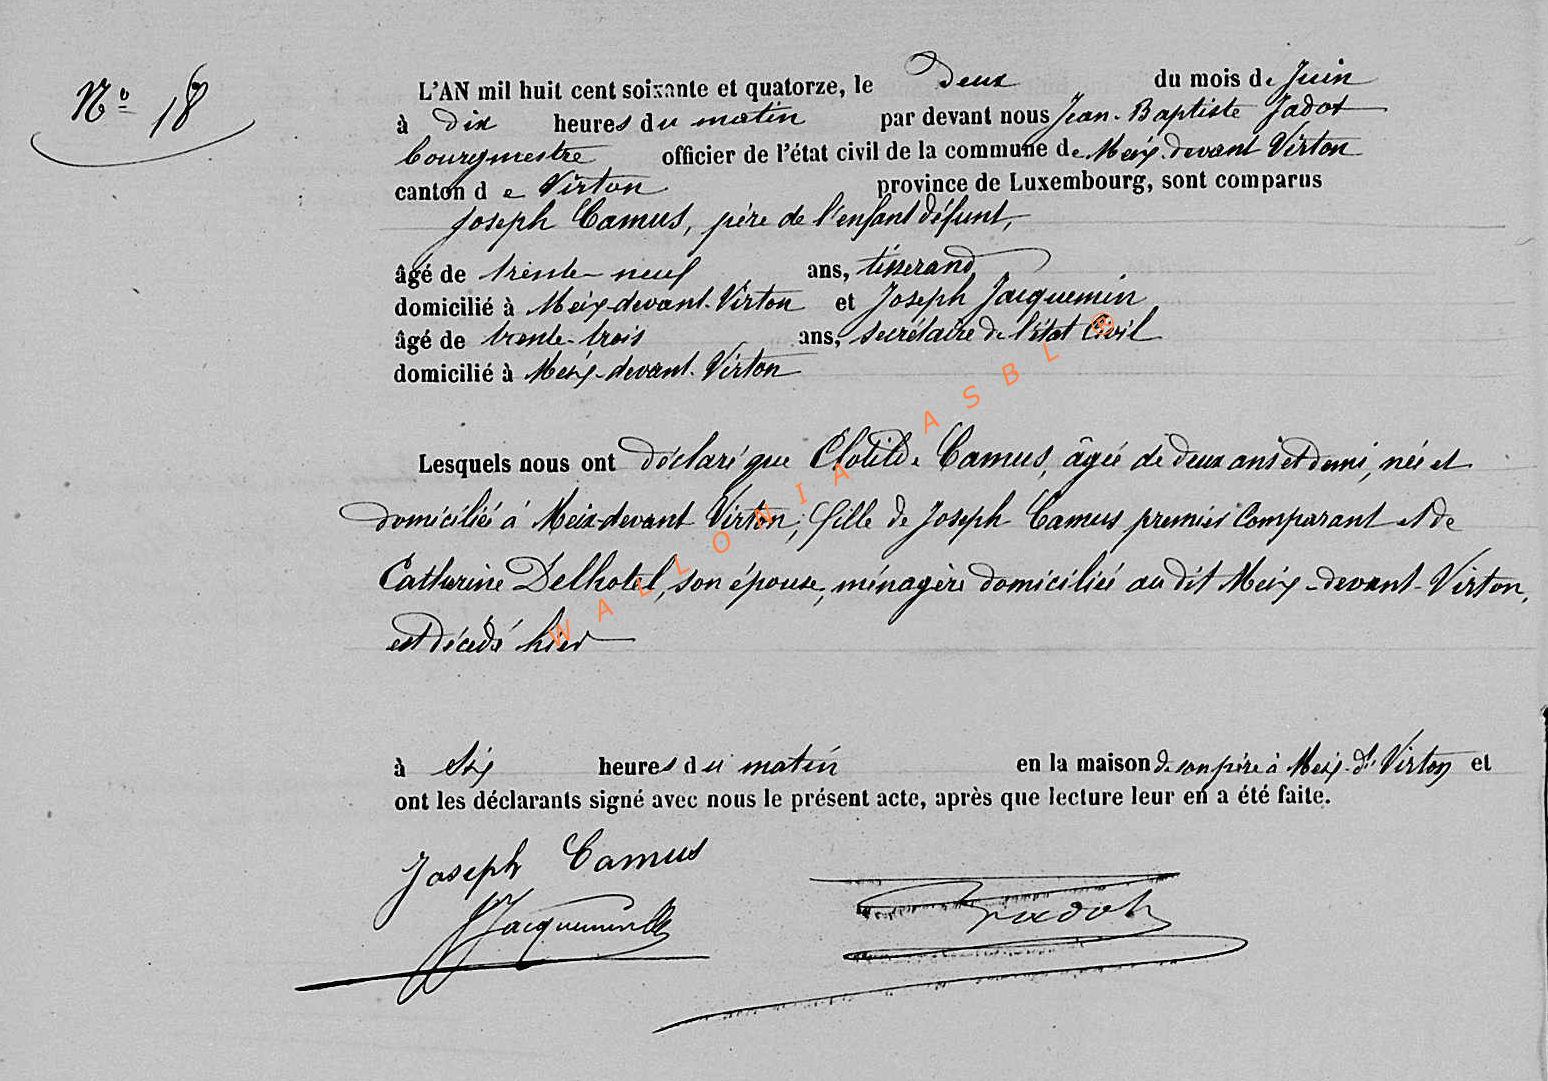 Nº 18
L'AN mil huit cent soixante et quatorze, le Deux du mois de Juin
à dix heures du matin par devant nous Jean-Baptiste Jadot
bourgmestre officier de l'état civil de la commune de Meix-devant Virton
canton de Virton province de Luxembourg, sont comparus
Joseph Camus, père de l'enfant défunt,
âgé de trente-neuf ans, tisserand
domicilié à Meix-devant-Virton et Joseph Jacquemin
âgé de trente-trois ans, secrétaire de l'état Civil
domicilié à Meix-devant-Virton
Lesquels nous ont déclaré que Clotilde Camus, âgée de deux ans et demi, née et
domiciliée à Meix-devant Virton, fille de Joseph Camus premier Comparant et de
Catherine Delhotel, son épouse, ménagère domiciliée au dit Meix-devant-Virton,
est décédé hier
à Six heures du matin en la maison de son père à Meix-dt Virton et
ont les déclarants signé avec nous le présent acte, après que lecture leur en a été faite.
Joseph Camus
JJacquemin Jadot
WALLONIA ASBL ®